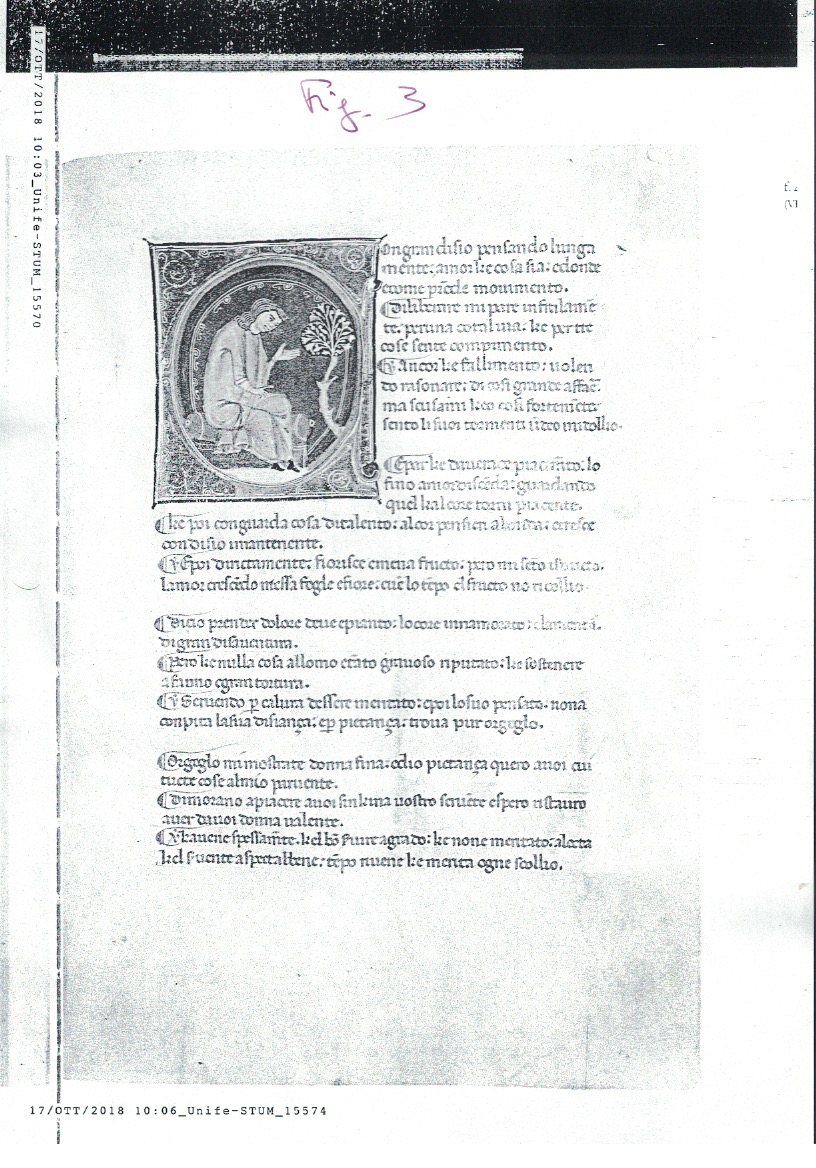 17/OTT/2018 10:03_Unife-STUM_15570
Fig. 3
f. 2
(VI
ongran disio pensando lunga
mente: amor ke cosa sia: edonde
ecome prēde mouimento.
Diliberare mi pare infra lamē
te: per una cotal uia: ke per tre
cose sente compimento.
Ancor ke fallimento: uolen
do rasonare: di cosi grande affare
ma scusami keo cosi fortemēte
sento li suoi tormenti
E par ke da uerace piacimēto: lo
fino amor discēda: guardando
quel kal core torni piacente.
ke poi con guarda cosa di talento: al cor pensieri cresce
con disio imantenente.
E poi dirictamente: fiorisce emena fructo: pero mi sēto
lamor crescēdo messa fogle efiore: eue lo tēpo el fructo no ricollio
Dicio prender dolore deue epianto: lo core innamorato:
di gran disauentura.
Pero ke nulla cosa allomo etāto grauoso riputato: ke sostenere
afanno egran tortura.
Seruendo p calura dessere meritato: epoi lo suo pensato. nona
conpita la sua disiança: ep pietança: troua pur orgoglo.
Orgoglo mi mostrate donna fina. edio pietança quero auoi cui
tucte cose almio paruente.
Dimorano apiacere auoi sinkina uostro seruēte espero ristauro
auer da uoi donna ualente.
kauene spessamēte. kel bō seruire agrado: ke none meritato: alocta
kel seruente aspecta bene: tēpo riuene ke merita ogne scollio.
17/OTT/2018 10:06_Unife-STUM_15574